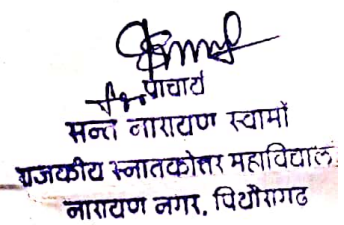 प्राचार्य
सन्त नारायण स्वामी
राजकीय स्नातकोत्तर महाविद्यालय
नारायण नगर, पिथौरागढ